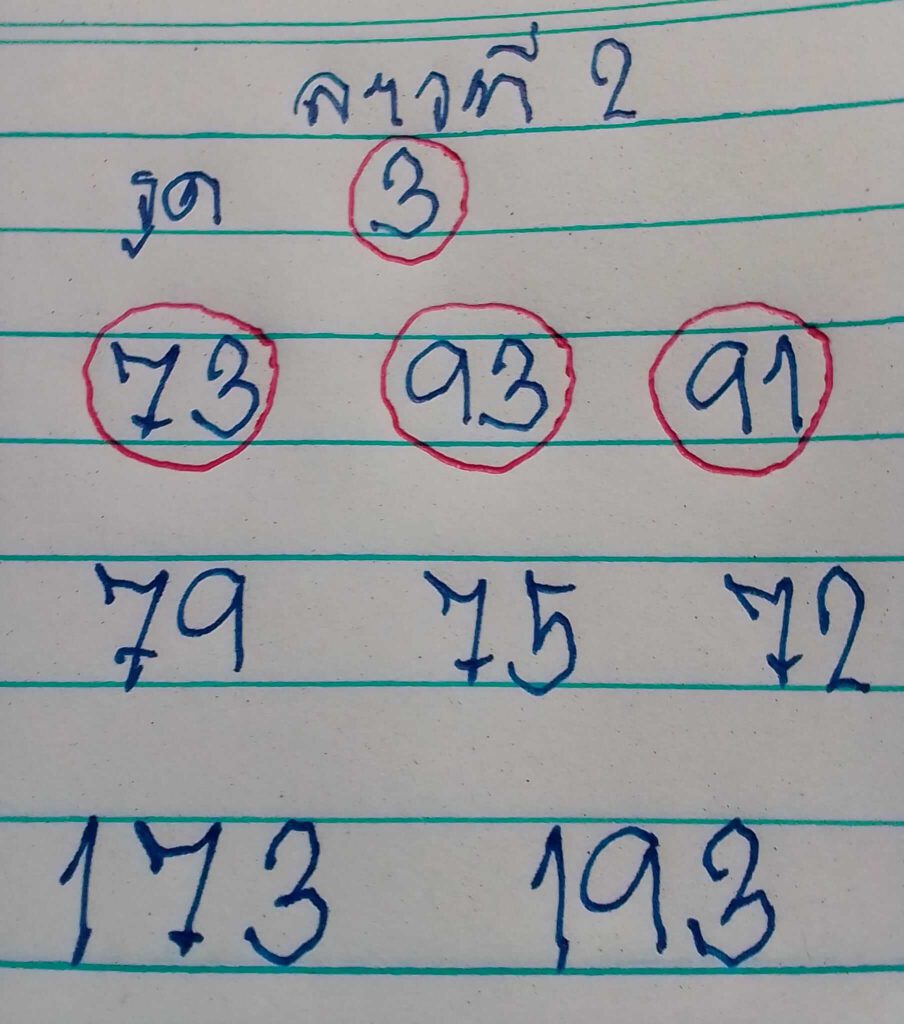 ลาวที่ 2
รูด 3
73 93 91
79 75 72
173 193